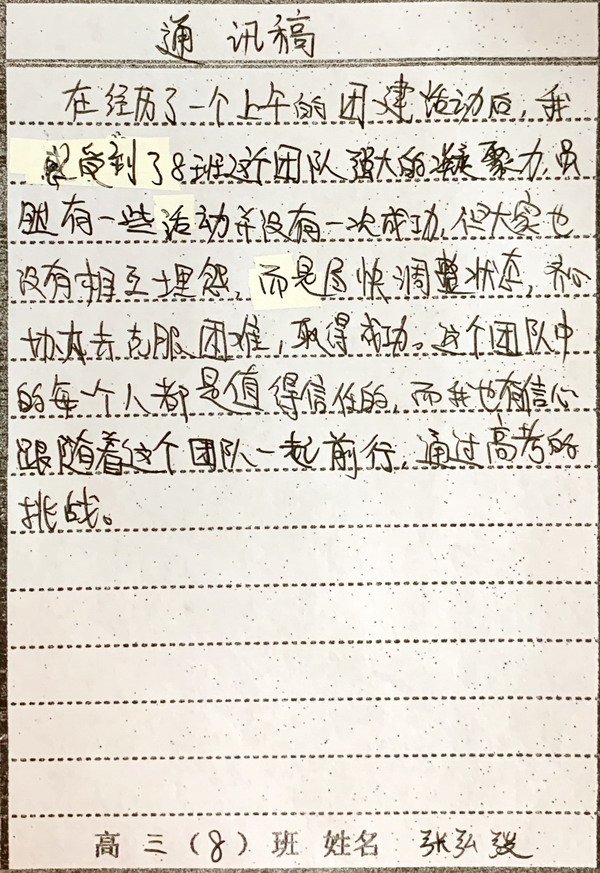 通讯稿
在经历了一个上午的团建活动后,我
感受到了8班这个团队强大的凝聚力,虽
然有一些活动并没有一次成功,但大家也
没有相互埋怨,而是尽快调整状态,齐心
协力去克服困难,取得成功。这个团队中
的每个人都是值得信任的,而我也有信心
跟随着这个团队一起前行,通过高考的
挑战。
高三(8)班 姓名 张弘